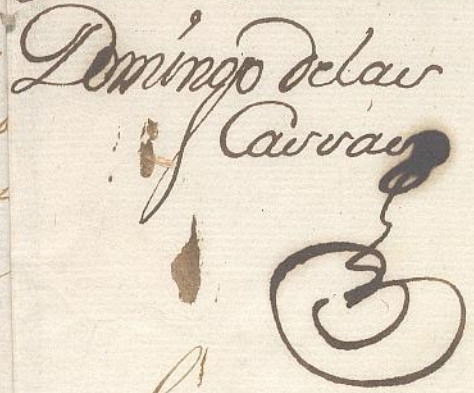 Domingo delas
Carras